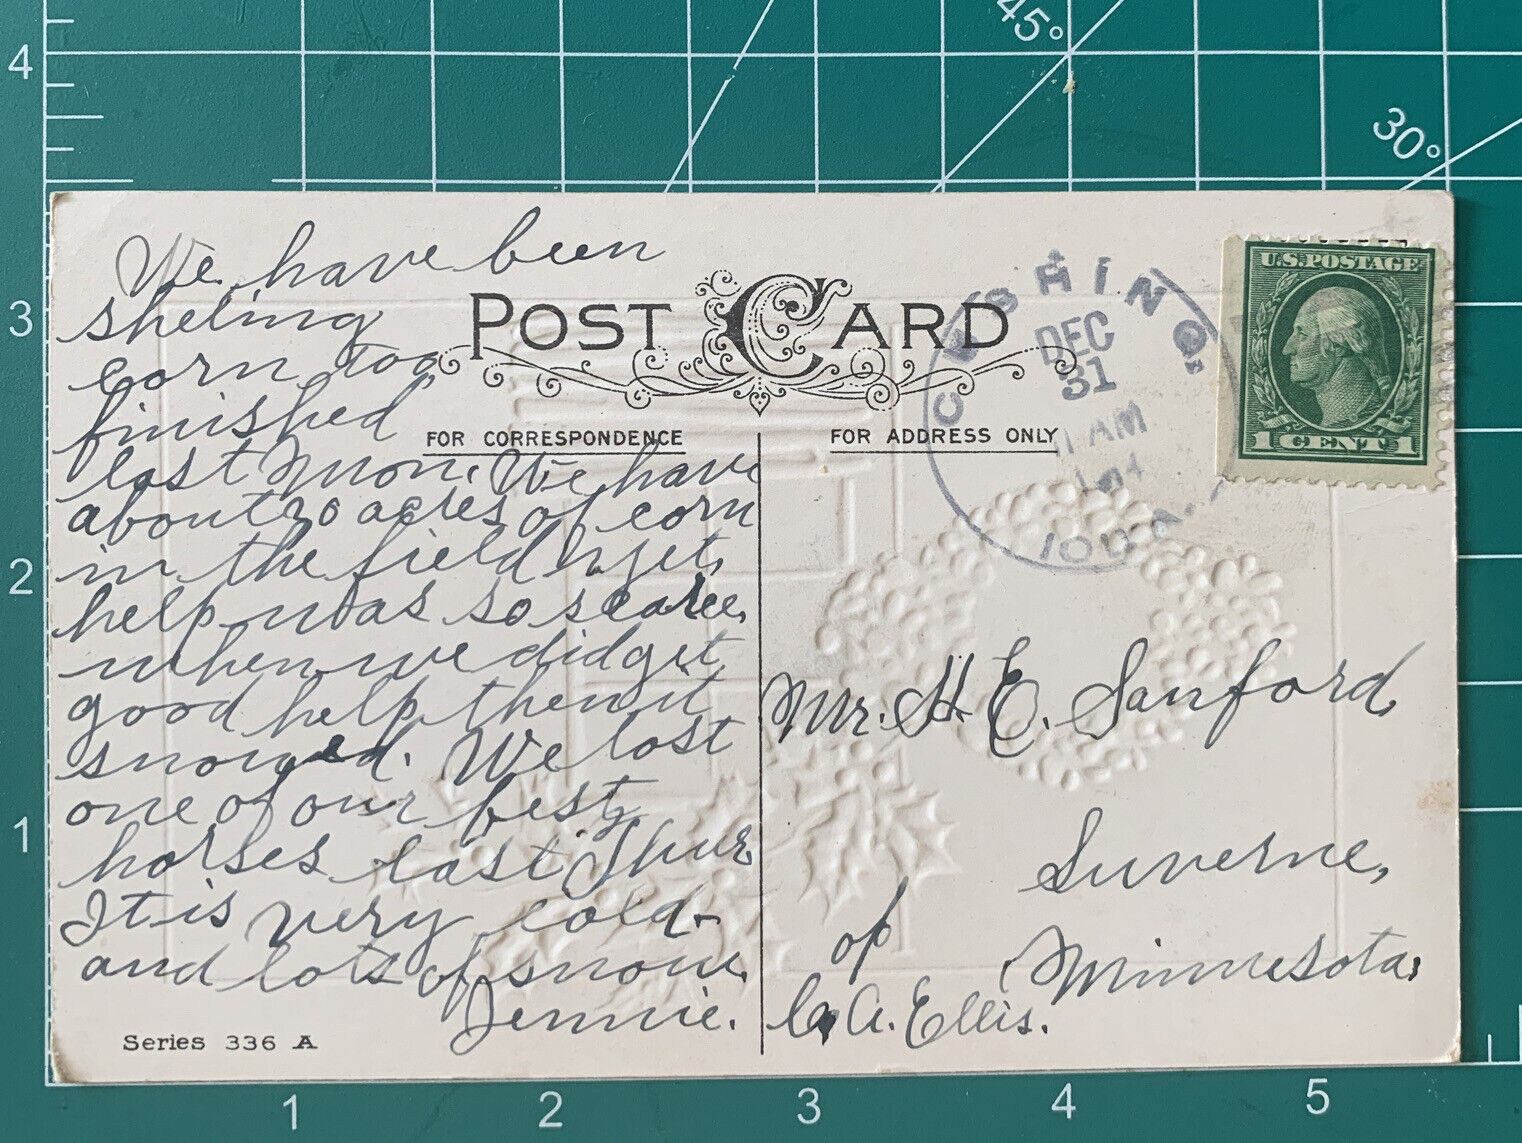 We have been
sheling
corn too
finished
last Mon. We have
about 20 acres of corn
in the field yet,
help was so scarce,
when we did get
good help then it
snowed. We lost
one of our best
horses last Thur
It is very cold
and lots of snow.
Jennie.
Series 336 A
POST CARD
FOR CORRESPONDENCE
FOR ADDRESS ONLY
CUSHING,
DEC
31
AM
IOWA.
U.S. POSTAGE
1 CENT 1
Mr. H. E. Sanford,
Luverne,
Minnesota,
of
C. A. Ellis.
45°
30°
4
3
2
1
1 2 3 4 5